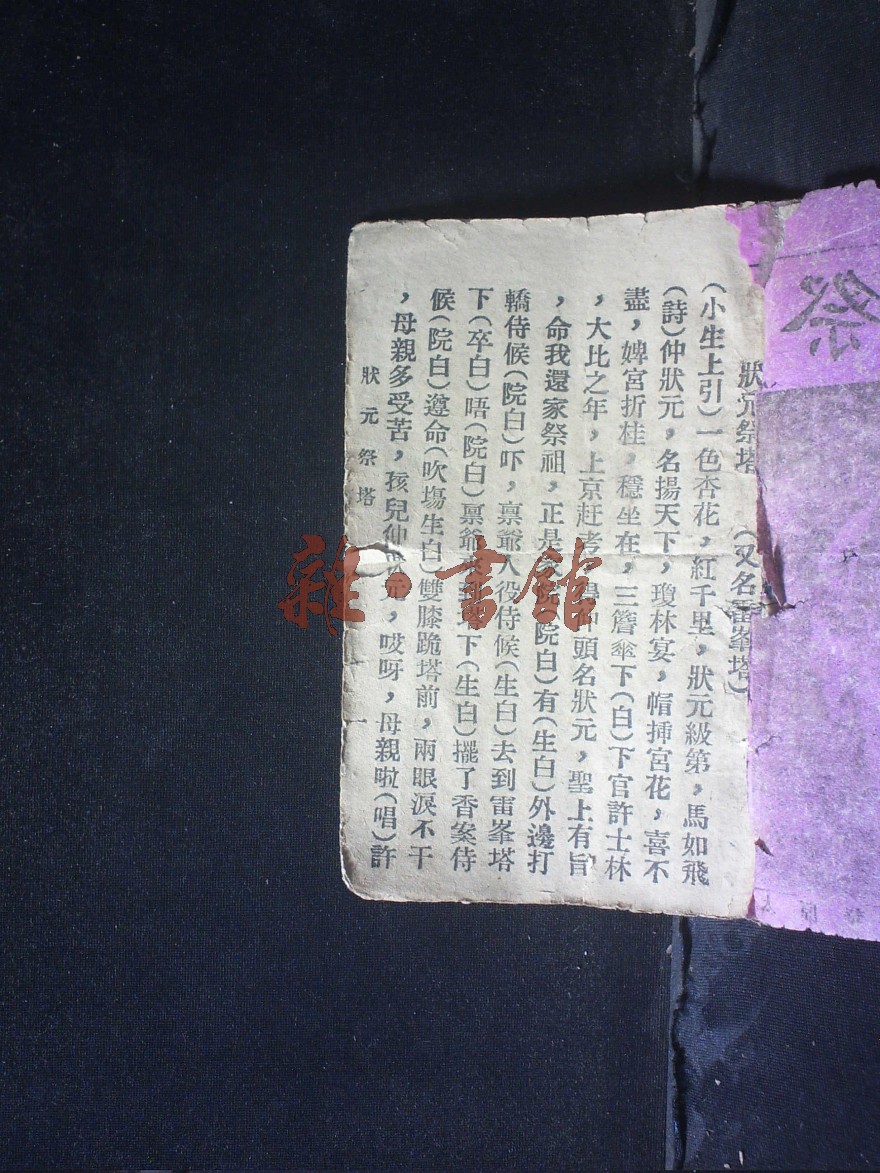 狀元祭塔 (又名雷峯塔)
(小生上引)一色杏花，紅千里，狀元級第，馬如飛
(詩)仲狀元，名揚天下，瓊林宴，帽揷宮花，喜不
盡，婢宮折桂，穩坐在，三簷傘下(白)下官許士林
，大比之年，上京赶考，仲頭名狀元，聖上有旨
，命我還家祭祖，正是 院(院白)有(生白)外邊打
轎侍候(院白)吓，禀爺人役侍候(生白)去到雷峯塔
下(卒白)唔(院白)禀爺 到 下(生白)擺了香案侍
候(院白)遵命(吹塲生白)雙膝跪塔前，兩眼淚不干
，母親多受苦，孩兒仲 元，哎呀，母親啦(唱)許
狀元祭塔 一
祭
雜·書館